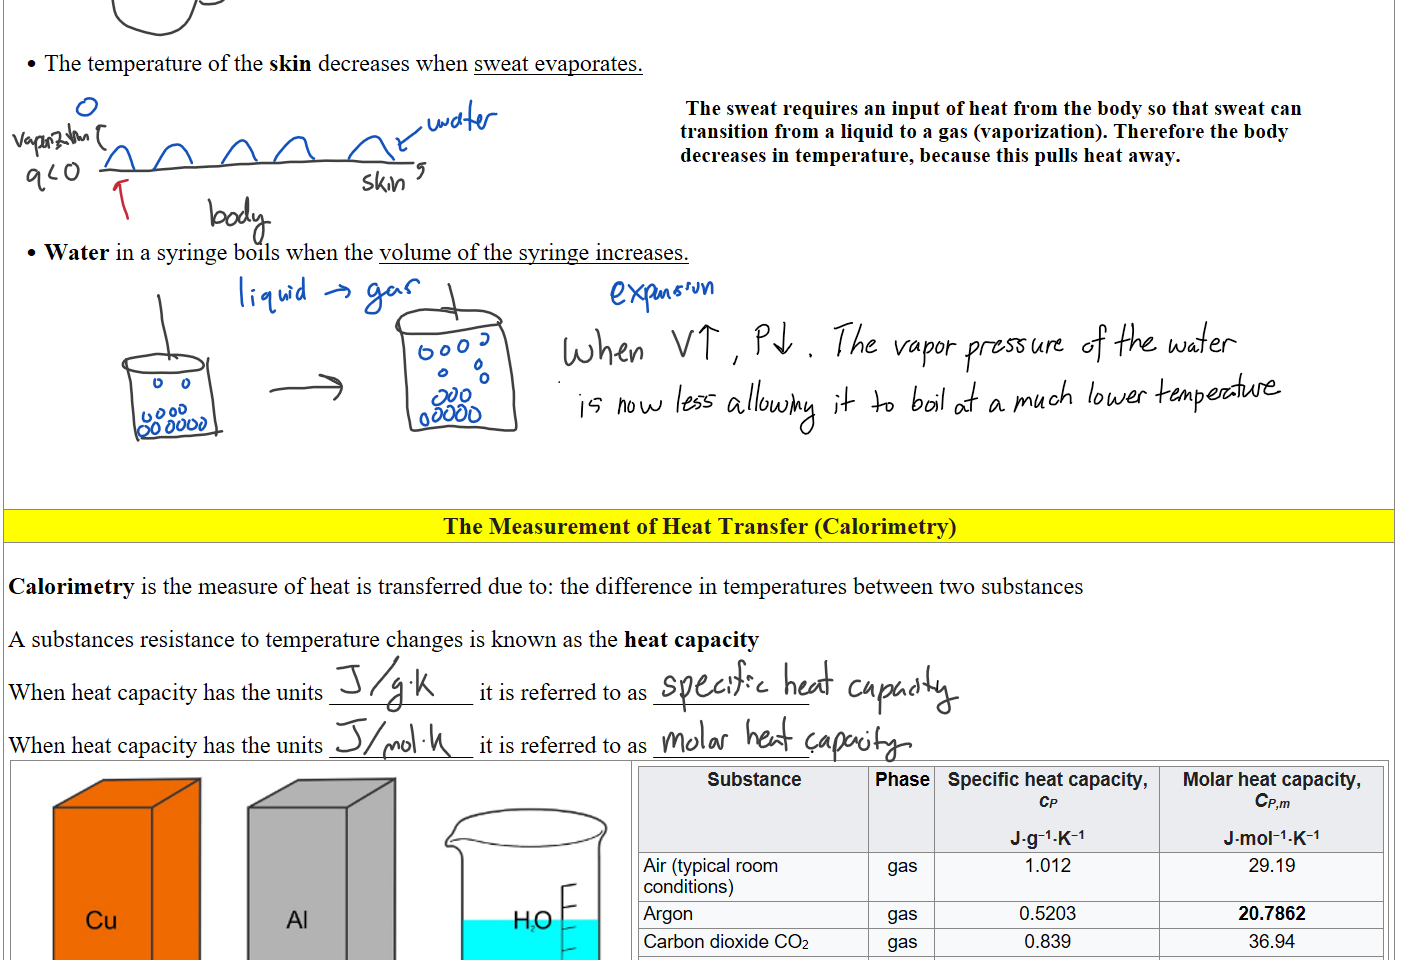 • The temperature of the skin decreases when sweat evaporates.
The sweat requires an input of heat from the body so that sweat can
transition from a liquid to a gas (vaporization). Therefore the body
decreases in temperature, because this pulls heat away.
water
q<0
skin
body
• Water in a syringe boils when the volume of the syringe increases.
liquid → gas
expansion
When V↑, P↓. The vapor pressure of the water
is now less allowing it to boil at a much lower temperature
The Measurement of Heat Transfer (Calorimetry)
Calorimetry is the measure of heat is transferred due to: the difference in temperatures between two substances
A substances resistance to temperature changes is known as the heat capacity
When heat capacity has the units J/g·K it is referred to as specific heat capacity
When heat capacity has the units J/mol·K it is referred to as molar heat capacity
Cu
Al
H₂O
Substance Phase Specific heat capacity, cP J·g⁻¹·K⁻¹ Molar heat capacity, CP,m J·mol⁻¹·K⁻¹
Air (typical room conditions) gas 1.012 29.19
Argon gas 0.5203 20.7862
Carbon dioxide CO₂ gas 0.839 36.94